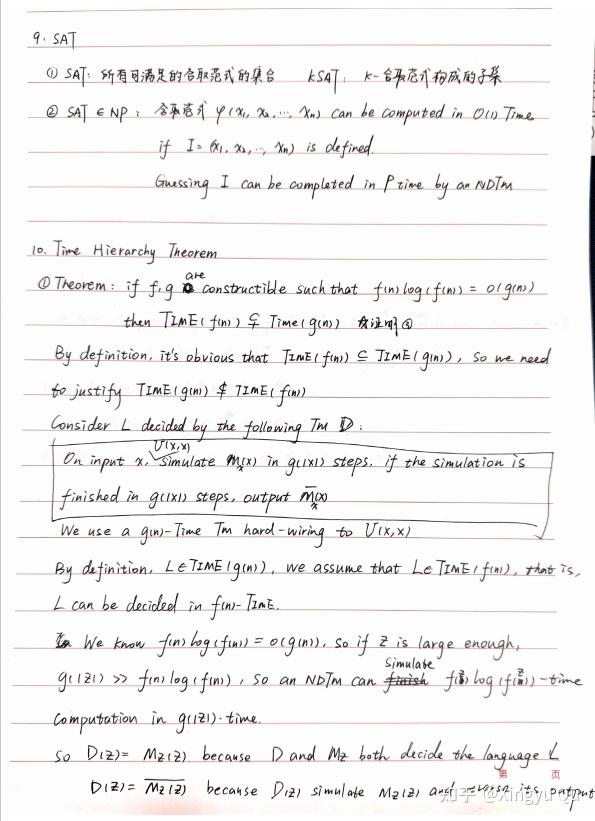 9. SAT
① SAT: 所有可满足的合取范式的集合 kSAT: k-合取范式构成的子集
② SAT ∈ NP: 合取范式 φ(x₁, x₂, ..., xₙ) can be computed in O(1) Time
if I = (x₁, x₂, ..., xₙ) is defined.
Guessing I can be completed in P time by an NDTM
10. Time Hierarchy Theorem
① Theorem: if f, g are constructible such that f(n) log(f(n)) = o(g(n))
then TIME(f(n)) ⊊ Time(g(n)) 证明
By definition, it's obvious that TIME(f(n)) ⊆ TIME(g(n)), so we need
to justify TIME(g(n)) ⊈ TIME(f(n))
Consider L decided by the following TM D:
U(x,x)
On input x, simulate Mₓ(x) in g(|x|) steps. if the simulation is
finished in g(|x|) steps, output M̅ₓ(x)
We use a g(n)-Time TM hard-wiring to U(x,x)
By definition, L∈TIME(g(n)), we assume that L∈TIME(f(n)), that is,
L can be decided in f(n)-TIME.
We know f(n) log(f(n)) = o(g(n)), so if z is large enough,
g(|z|) >> f(n) log(f(n)), so an NDTM can simulate f(z) log(f(z))-time
computation in g(|z|)-time.
So D(z) = Mz(z) because D and Mz both decide the language L
第 页
D(z) = \overline{Mz(z)} because D(z) simulate Mz(z) and reverse its output
知乎 @Xingyu Qu